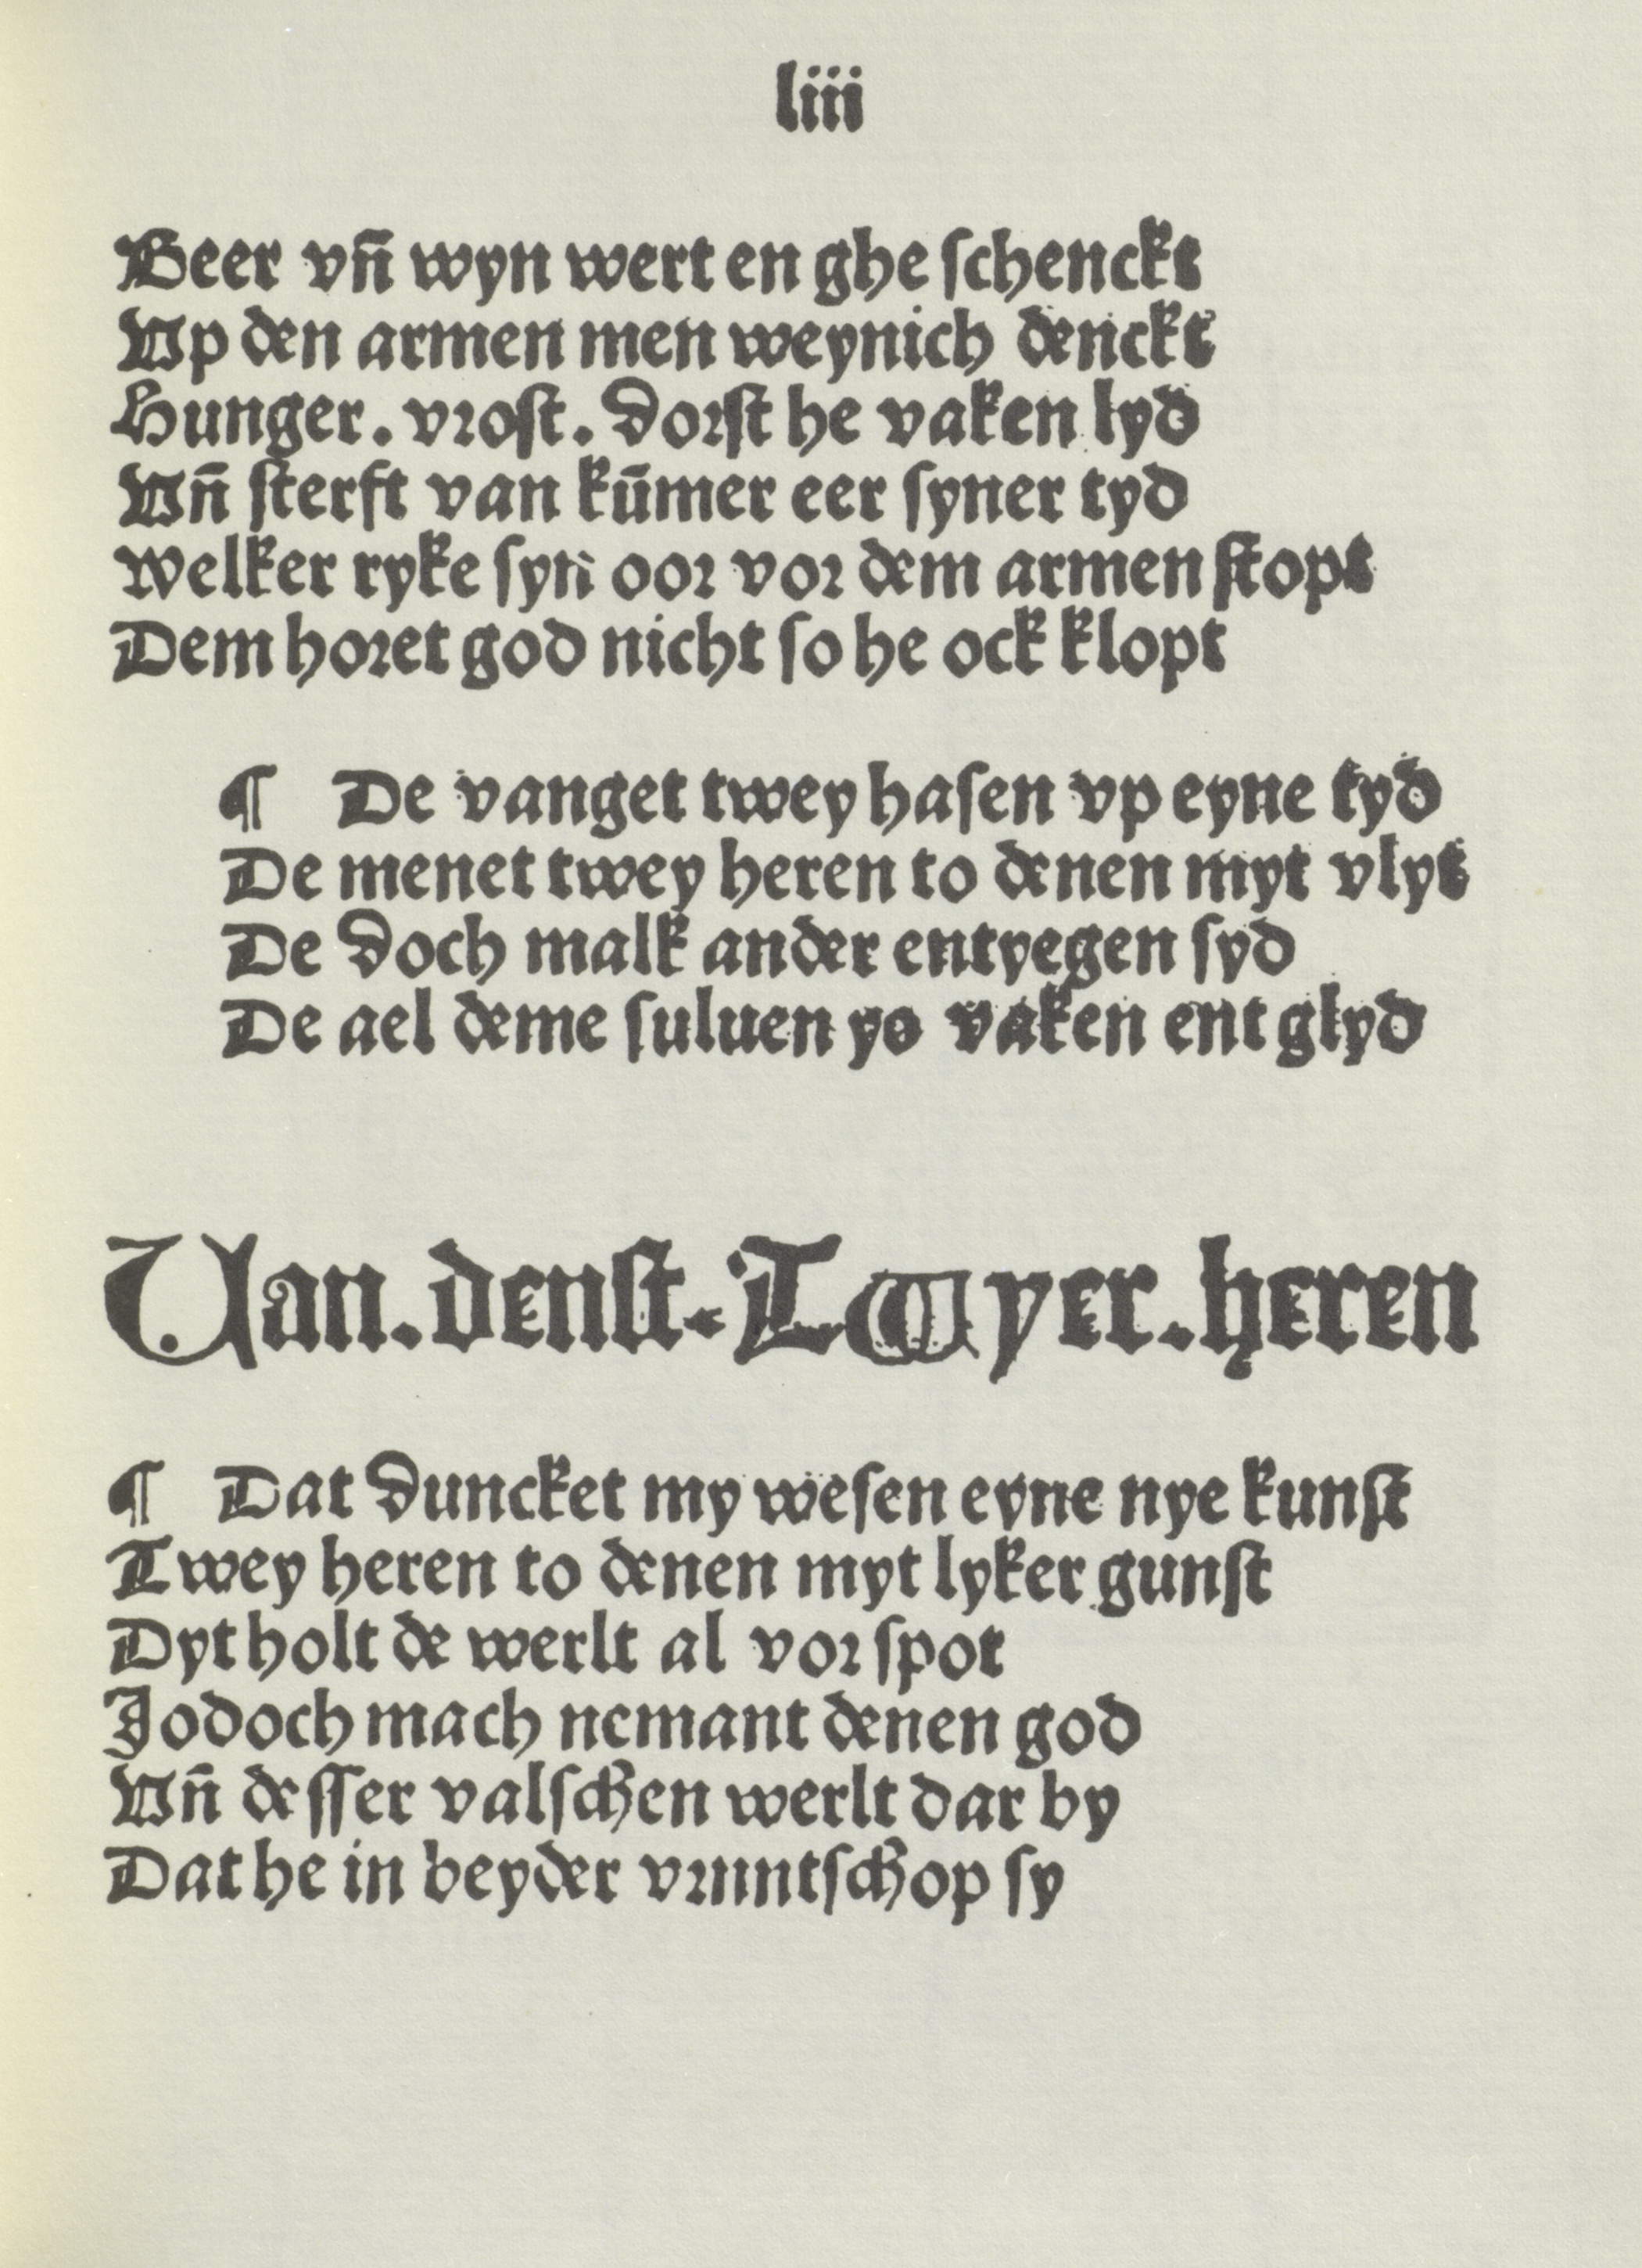 liii
Beer vn̄ wyn wert en ghe ſchenckt
Vp den armen men weynich denckt
Hunger. vꝛoſt. doꝛſt he vaken lyd
Vn̄ ſterft van kūmer eer ſyner tyd
Welker ryke ſyn ooꝛ voꝛ dem armen ſtopt
Dem hoꝛet god nicht ſo he ock klopt
¶ De vanget twey haſen vp eyne tyd
De menet twey heren to denen myt vlyt
De doch malk ander entyegen ſyd
De ael deme ſuluen yo vaken ent glyd
Van. denſt. Twyer. heren
¶ Dat duncket my weſen eyne nye kunſt
Twey heren to denen myt lyker gunſt
Dyt holt de werlt al voꝛ ſpot
Jodoch mach nemant denen god
Vn̄ deſſer valſchen werlt dar by
Dat he in beyder vꝛuntſchop ſy